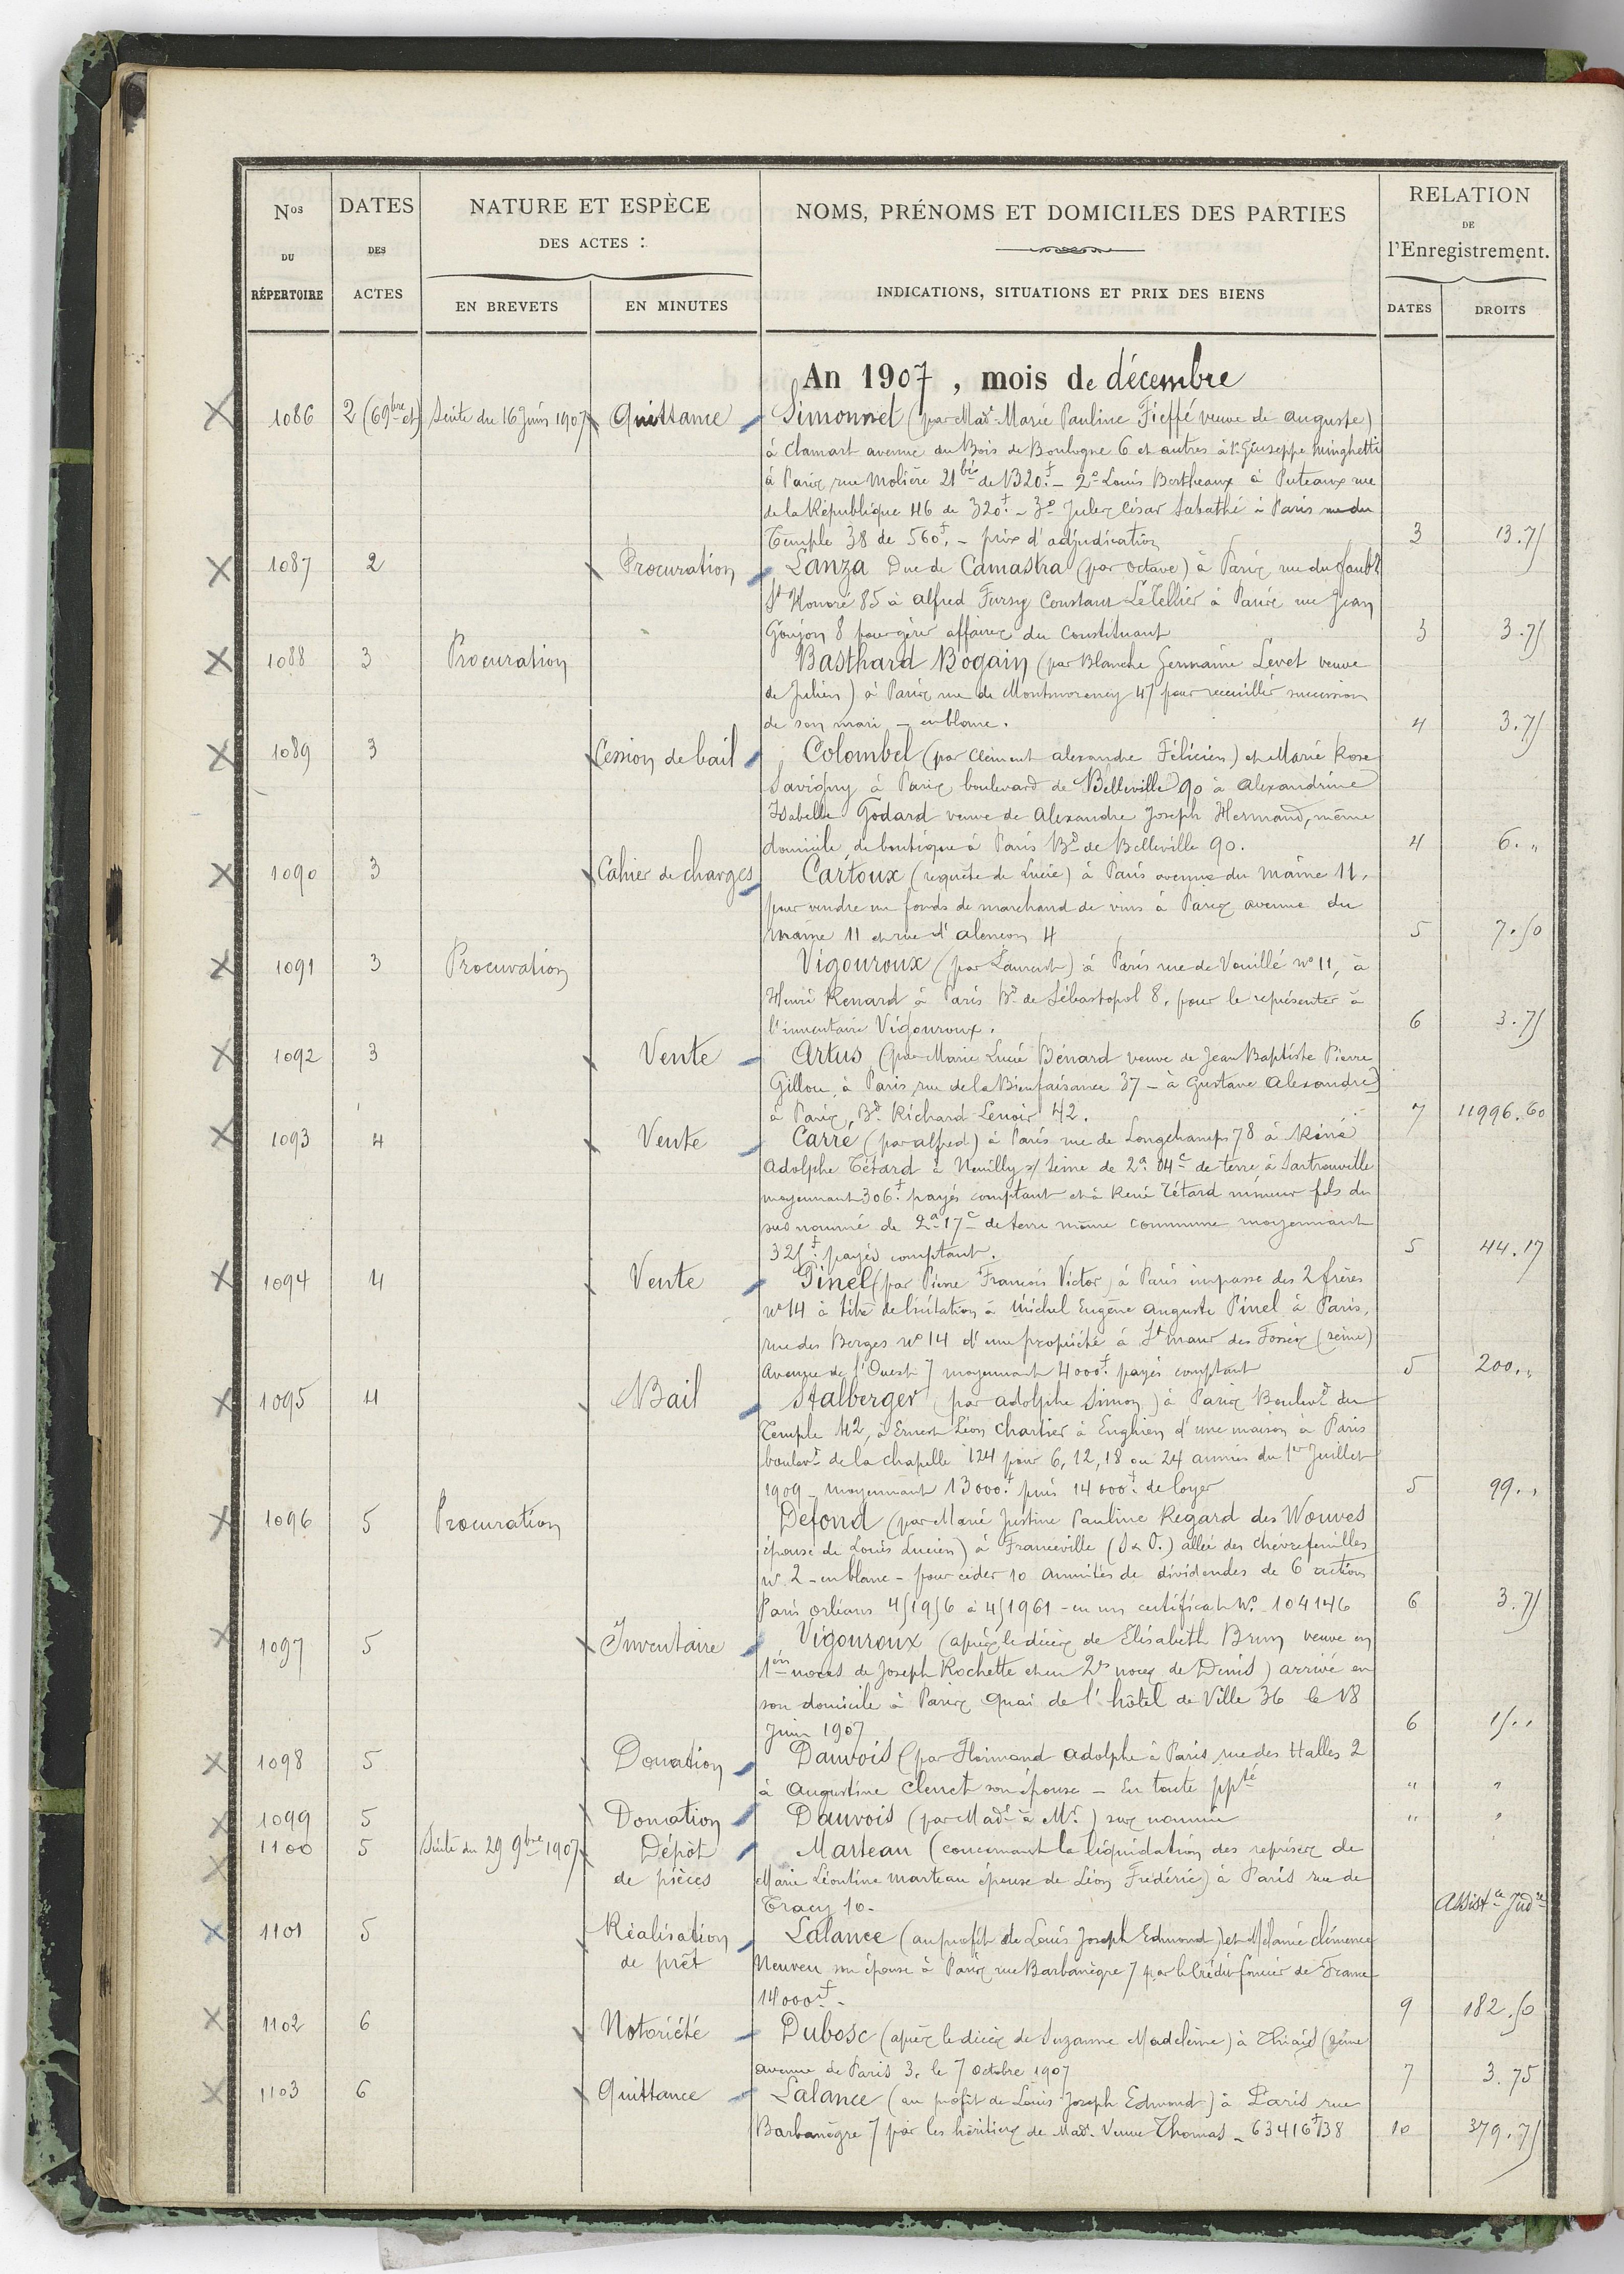 Nos DU RÉPERTOIRE
DATES DES ACTES
NATURE ET ESPÈCE DES ACTES :
EN BREVETS
EN MINUTES
NOMS, PRÉNOMS ET DOMICILES DES PARTIES
INDICATIONS, SITUATIONS ET PRIX DES BIENS
RELATION DE l'Enregistrement.
DATES
DROITS
An 1907, mois de décembre
1086 2 (6 9bre et) Suite du 16 Juin 1907 Quittance Simonnet (par Made Marie Pauline Fieffé veuve de auguste)
à Clamart avenue du Bois de Boulogne 6 et autres à 1° Giuseppe Minghetti
à Paris, rue Molière 21bis de 1320f. - 2° Louis Bertheaux à Puteaux rue
de la République 46 de 320f. - 3° Jules César Sabathé à Paris rue du
Temple 38 de 560f. - prix d'adjudication 3 13.75
1087 2 Procuration Lanza Duc de Camastra (par octave) à Paris rue du faubg
St Honoré 85 à alfred Fursy Constant LeTellier à Paris rue Jean
Goujon 8 pour gérer affaires du Constituant 3 3.75
1088 3 Procuration Basthard Bogain (par Blanche Germaine Levet veuve
de Julien) à Paris rue de Montmorency 47 pour recueillir succession
de son mari - en blanc. 4 3.75
1089 3 Cession de bail Colombel (par Clément alexandre Félicien) et Marie Rose
Savigny à Paris boulevard de Belleville 90 à Alexandrine
Isabelle Godard veuve de Alexandre Joseph Hermand, même
domicile, de boutique à Paris Bd de Belleville 90. 4 6.„
1090 3 Cahier de charges Cartoux (requête de Lucie) à Paris avenue du Maine 11,
pour vendre un fonds de marchand de vins à Paris avenue du
maine 11 et rue d'alençon 4 5 7.50
1091 3 Procuration Vigouroux (par Laurent) à Paris rue de Vouillé n° 11, à
Henri Renard à Paris Bd de Sébastopol 8, pour le représenter à
l'inventaire Vigouroux. 6 3.75
1092 3 Vente Artus (par Marie Lucie Bénard veuve de Jean Baptiste Pierre
Gillou, à Paris, rue de la Bienfaisance 37 - à Gustave Alexandre)
à Paris, Bd. Richard Lenoir 42. 7 11996.60
1093 4 Vente Carré (par alfred) à Paris rue de Longchamps 78 à René
Adolphe Tétard à Neuilly s/ Seine de 2a 04c de terre à Sartrouville
moyennant 306f. payés comptant et à René Tétard mineur fils du
sus nommé de 2a 17c de terre même commune moyennant
325f. payés comptant. 5 44.17
1094 4 Vente Pinel (par Pierre François Victor) à Paris impasse des 2 frères
n° 14 à titre de licitation à Michel Eugène Auguste Pinel à Paris,
rue des Berges n° 14 d'une propriété à St maur des Fossés (seine)
Avenue de l'Ouest 7 moyennant 4000f. payés comptant 5 200.„
1095 4 Bail Stalberger (par adolphe Simon) à Paris Boulevd du
Temple 42, à Ernest Léon Chartier à Enghien d'une maison à Paris
boulevd de la chapelle 124 pour 6, 12, 18 ou 24 années du 1er Juillet
1909 - moyennant 13000f. puis 14000f. de loyer 5 99.„
1096 5 Procuration Defond (par Marie Justine Pauline Regard des Wouves
épouse de Louis Lucien) à Franceville (S & O.) allée des chèvrefeuilles
n° 2 - en blanc - pour céder 10 annuités de dividendes de 6 actions
Paris, orléans 451956 à 451961 - en un certificat N° 104146 6 3.75
1097 5 Inventaire Vigouroux (après le décès de Elisabeth Brun veuve en
1ères noces de Joseph Rochette et en 2es noces de Denis) arrivé en
son domicile à Paris quai de l'hôtel de Ville 36 le 18
Juin 1907 6 15.„
1098 5 Donation Dauvois (par Florimond Adolphe à Paris, rue des Halles 2
à Augustine Clenet son épouse - En toute ppté „ „
1099 5 Donation Dauvois (par Made à Mr.) sus nommés „ „
1100 5 Suite du 29 9bre 1907 Dépôt de pièces Marteau (concernant la liquidation des reprises de
Marie Léontine marteau épouse de Léon Frédéric) à Paris rue de
Tracy 10. Assistce Judre
1101 5 Réalisation de prêt Lalance (au profit de Louis Joseph Edmond) et Mélanie clémence
Neuveu son épouse à Paris rue Barbanègre 7 par le Crédit foncier de France
14000f. 9 182.50
1102 6 Notoriété Dubosc (après le décès de Suzanne Madeleine) à Thiais (seine
avenue de Paris 3, le 7 octobre 1907 7 3.75
1103 6 Quittance Lalance (au profit de Louis Joseph Edmond) à Paris rue
Barbanègre 7 par les héritiers de Made. Veuve Thomas - 63416f38 10 379.75